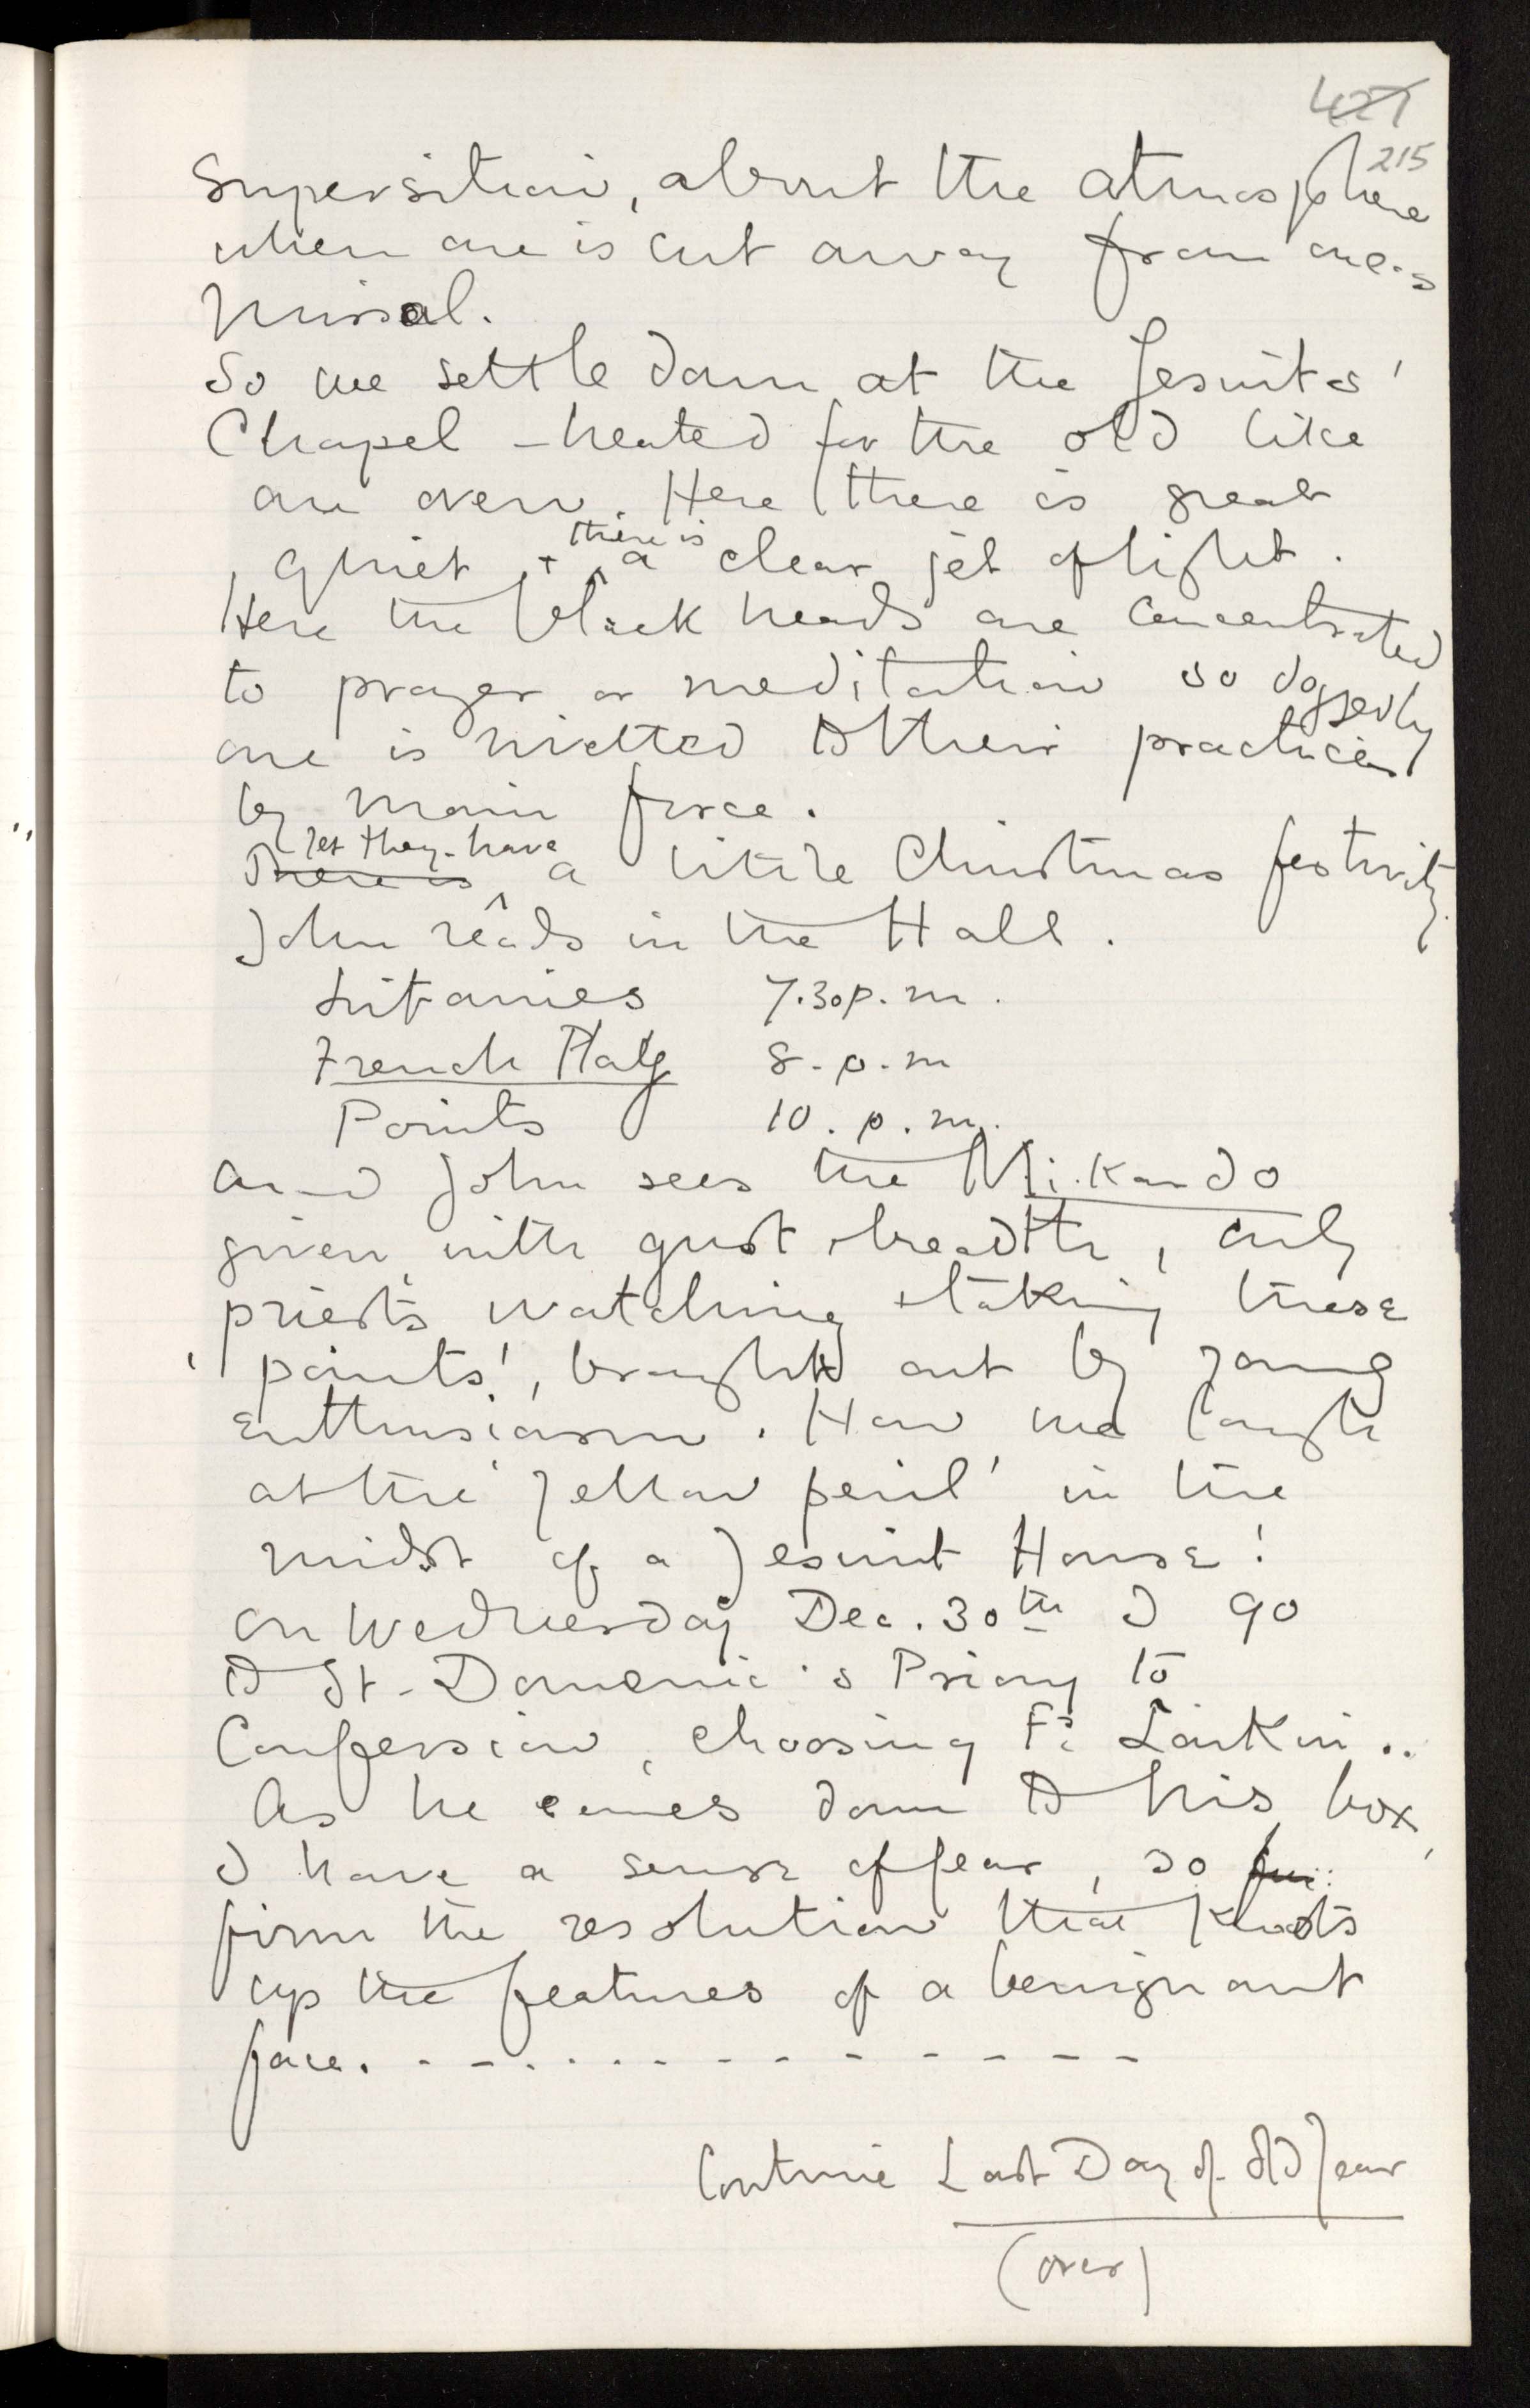 427
215
Supersition, about the atmosphere
when one is cut away from one's
Missal.
So we settle down at the Jesuits'
Chapel - heated for the old like
an oven. Here there is great
quiet + there is a clear jet of light.
Here the black heads are concentrated
to prayer or meditation so doggedly
one is rivetted to their practices
by main force.
There is yet they have a little Christmas festivity.
John reads in the Hall.
Litanies 7.30 p.m.
French Play 8. p.m
Points 10. p.m.
And John sees the Mikando
given with gust + breadth, only
priests watching + taking these
'points', brought out by young
enthusiasm. How we laugh
at the 'Yellow peril' in the
midst of a Jesuit House!
On Wednesday Dec. 30th I go
to St. Domenic's Priory to
Confession, choosing Fr Larkin..
As he comes down to his box,
I have a sense of fear, so
firm the resolution that knots
up the features of a benignant
face. . - - . . . . - - - - - - -
Continue Last Day of Old Year
(over)